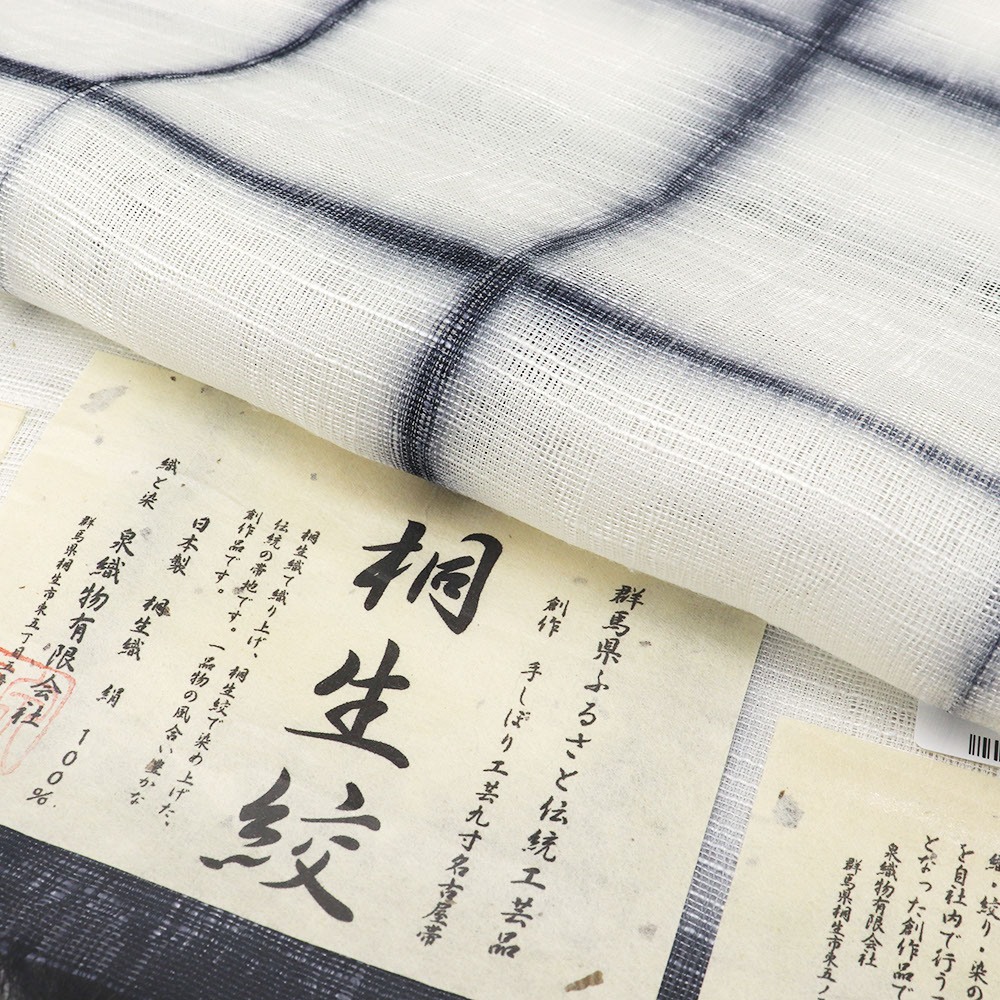 群馬県ふるさと伝統工芸品
創作 手しぼり工芸九寸名古屋帯
桐生絞
桐生織で織り上げ、桐生絞で染め上げた、
伝統の帯地です。一品物の風合い豊かな
創作品です。
日本製 桐生織 絹 100%
織と染 泉織物有限会社
群馬県桐生市東五丁目五番
織・絞り・染の
を自社内で行う
となった創作品で
泉織物有限会社
群馬県桐生市東五ノ